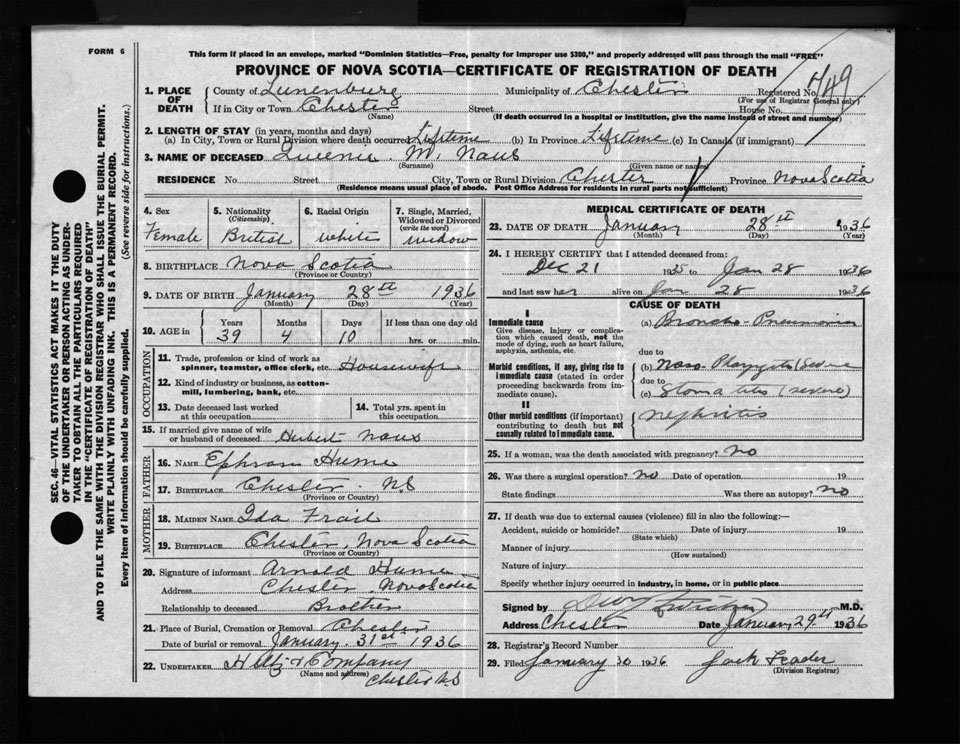 FORM 6
This form if placed in an envelope, marked "Dominion Statistics—Free, penalty for improper use $300," and properly addressed will pass through the mail "FREE"
PROVINCE OF NOVA SCOTIA—CERTIFICATE OF REGISTRATION OF DEATH
SEC. 46—VITAL STATISTICS ACT MAKES IT THE DUTY
OF THE UNDERTAKER OR PERSON ACTING AS UNDER-
TAKER TO OBTAIN ALL THE PARTICULARS REQUIRED
IN THE "CERTIFICATE OF REGISTRATION OF DEATH"
AND TO FILE THE SAME WITH THE DIVISION REGISTRAR WHO SHALL ISSUE THE BURIAL PERMIT.
WRITE PLAINLY WITH UNFADING INK. THIS IS A PERMANENT RECORD.
Every item of information should be carefully supplied. (See reverse side for instructions.)
1. PLACE OF DEATH
County of Lunenburg Municipality of Chester Registered No. 749
(For use of Registrar General only)
If in City or Town Chester Street House No.
(Name) (If death occurred in a hospital or institution, give the name instead of street and number)
2. LENGTH OF STAY (in years, months and days)
(a) In City, Town or Rural Division where death occurred Lifetime (b) In Province Lifetime (c) In Canada (if immigrant)
3. NAME OF DECEASED M. Naus
(Surname) (Given name or names)
RESIDENCE No. Street City, Town or Rural Division Chester Province Nova Scotia
(Residence means usual place of abode. Post Office Address for residents in rural parts not sufficient)
4. Sex
Female
5. Nationality
(Citizenship)
British
6. Racial Origin
white
7. Single, Married,
Widowed or Divorced
(write the word)
widow
8. BIRTHPLACE Nova Scotia
(Province or Country)
9. DATE OF BIRTH January 28th 1936
(Month) (Day) (Year)
10. AGE in
Years Months Days If less than one day old
39 4 10 hrs. or min.
OCCUPATION
11. Trade, profession or kind of work as
spinner, teamster, office clerk, etc. Housewife
12. Kind of industry or business, as cotton-
mill, lumbering, bank, etc.
13. Date deceased last worked
at this occupation
14. Total yrs. spent in
this occupation
15. If married give name of wife
or husband of deceased Hubert Naus
FATHER
16. NAME Ephram Hume
17. BIRTHPLACE Chester NS
(Province or Country)
MOTHER
18. MAIDEN NAME Ida Frail
19. BIRTHPLACE Chester, Nova Scotia
(Province or Country)
20. Signature of informant Arnold Hume
Address Chester, Nova Scotia
Relationship to deceased Brother
21. Place of Burial, Cremation or Removal Chester
Date of burial or removal January 31st 1936
22. UNDERTAKER & Company
(Name and address) Chester NS
MEDICAL CERTIFICATE OF DEATH
23. DATE OF DEATH January 28th 1936
(Month) (Day) (Year)
24. I HEREBY CERTIFY that I attended deceased from:
Dec 21 1935 to Jan 28 1936
and last saw her alive on Jan 28 1936
CAUSE OF DEATH
I
Immediate cause
Give disease, injury or complica-
tion which caused death, not the
mode of dying, such as heart failure,
asphyxia, asthenia, etc.
(a) Broncho-Pneumonia
due to
Morbid conditions, if any, giving rise to
immediate cause (stated in order
proceeding backwards from im-
mediate cause).
(b) Naso-Pharyngitis (Severe
due to
(c) Stomatitis (severe)
II
Other morbid conditions (if important)
contributing to death but not
causally related to immediate cause.
Nephritis
25. If a woman, was the death associated with pregnancy? No
26. Was there a surgical operation? No Date of operation 19
State findings Was there an autopsy? No
27. If death was due to external causes (violence) fill in also the following:—
Accident, suicide or homicide? Date of injury 19
(State which)
Manner of injury
(How sustained)
Nature of injury
Specify whether injury occurred in industry, in home, or in public place
Signed by M.D.
Address Chester Date January 29th 1936
28. Registrar's Record Number
29. Filed January 30 1936 Jack Leader
(Division Registrar)